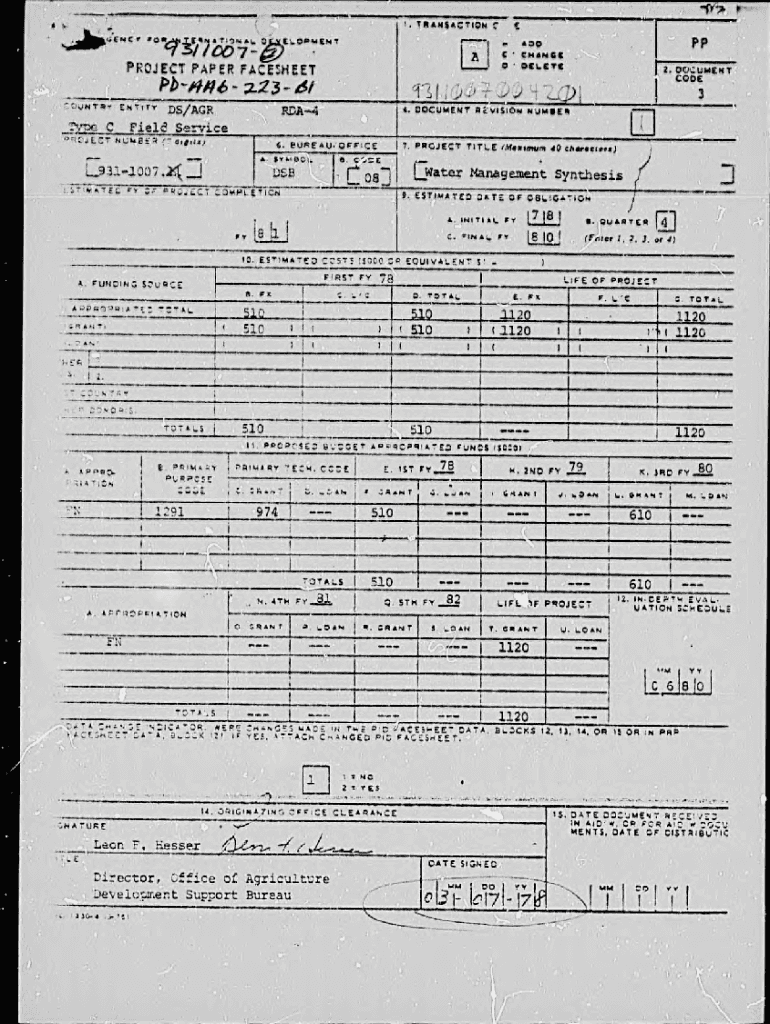 1. TRANSACTION C E
AGENCY FOR INTERNATIONAL DEVELOPMENT
9311007-
PROJECT PAPER FACESHEET
PD-AAG-223-B1
A
A ADD
C CHANGE
D DELETE
PP
2. DOCUMENT CODE
3
9311007004201
COUNTRY ENTITY DS/AGR RDA-4
Type C Field Service
4. DOCUMENT REVISION NUMBER
1
PROJECT NUMBER (7 digits)
931-1007.
6. BUREAU/OFFICE
A. SYMBOL B. CODE
DSB 08
7. PROJECT TITLE (Maximum 40 characters)
Water Management Synthesis
ESTIMATED FY OF PROJECT COMPLETION
FY 81
9. ESTIMATED DATE OF OBLIGATION
A. INITIAL FY 78 B. QUARTER 4
C. FINAL FY 80 (Enter 1, 2, 3, or 4)
10. ESTIMATED COSTS ($000 OR EQUIVALENT $1 = )
A. FUNDING SOURCE FIRST FY 78 LIFE OF PROJECT
B. FX C. L/C D. TOTAL E. FX F. L/C G. TOTAL
APPROPRIATED TOTAL 510 510 1120 1120
(GRANT) ( 510 ) ( ) ( 510 ) ( 1120 ) ( ) ( 1120
(LOAN) ( ) ( ) ( ) ( ) ( )
1.
2.
HOST COUNTRY
OTHER DONOR(S)
TOTALS 510 510 ---- 1120
11. PROPOSED BUDGET APPROPRIATED FUNDS ($000)
A. APPROPRIATION B. PRIMARY PURPOSE CODE PRIMARY TECH. CODE E. 1ST FY 78 H. 2ND FY 79 K. 3RD FY 80
C. GRANT D. LOAN F. GRANT G. LOAN I. GRANT J. LOAN L. GRANT M. LOAN
FN 1291 974 --- 510 --- --- --- 610 ---
TOTALS 510 --- --- --- 610 ---
A. APPROPRIATION N. 4TH FY 81 Q. 5TH FY 82 LIFE OF PROJECT
12. IN-DEPTH EVALUATION SCHEDULE
O. GRANT P. LOAN R. GRANT S. LOAN T. GRANT U. LOAN
FN --- --- --- --- 1120 ---
MM YY
0680
TOTALS --- --- --- --- 1120 ---
DATA CHANGE INDICATOR. WERE CHANGES MADE IN THE PID FACESHEET DATA, BLOCKS 12, 13, 14, OR 15 OR IN PRP
FACESHEET DATA, BLOCK 12? IF YES, ATTACH CHANGED PID FACESHEET.
1
1 = NO
2 = YES
14. ORIGINATING OFFICE CLEARANCE
15. DATE DOCUMENT RECEIVED
IN AID/W, OR FOR AID/W DOCU
MENTS, DATE OF DISTRIBUTIO
SIGNATURE
Leon F. Hesser
TITLE
Director, Office of Agriculture
Development Support Bureau
DATE SIGNED
MM DD YY
03-07-78
MM DD YY